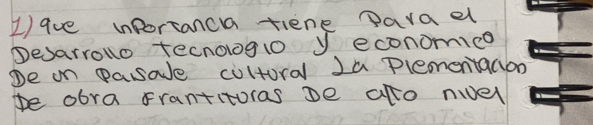 1) que inportancia tiene para el
Desarrollo tecnologio y economico
De un paisaje cultural La Plementacion
De obra Frantitoras De alto nivel